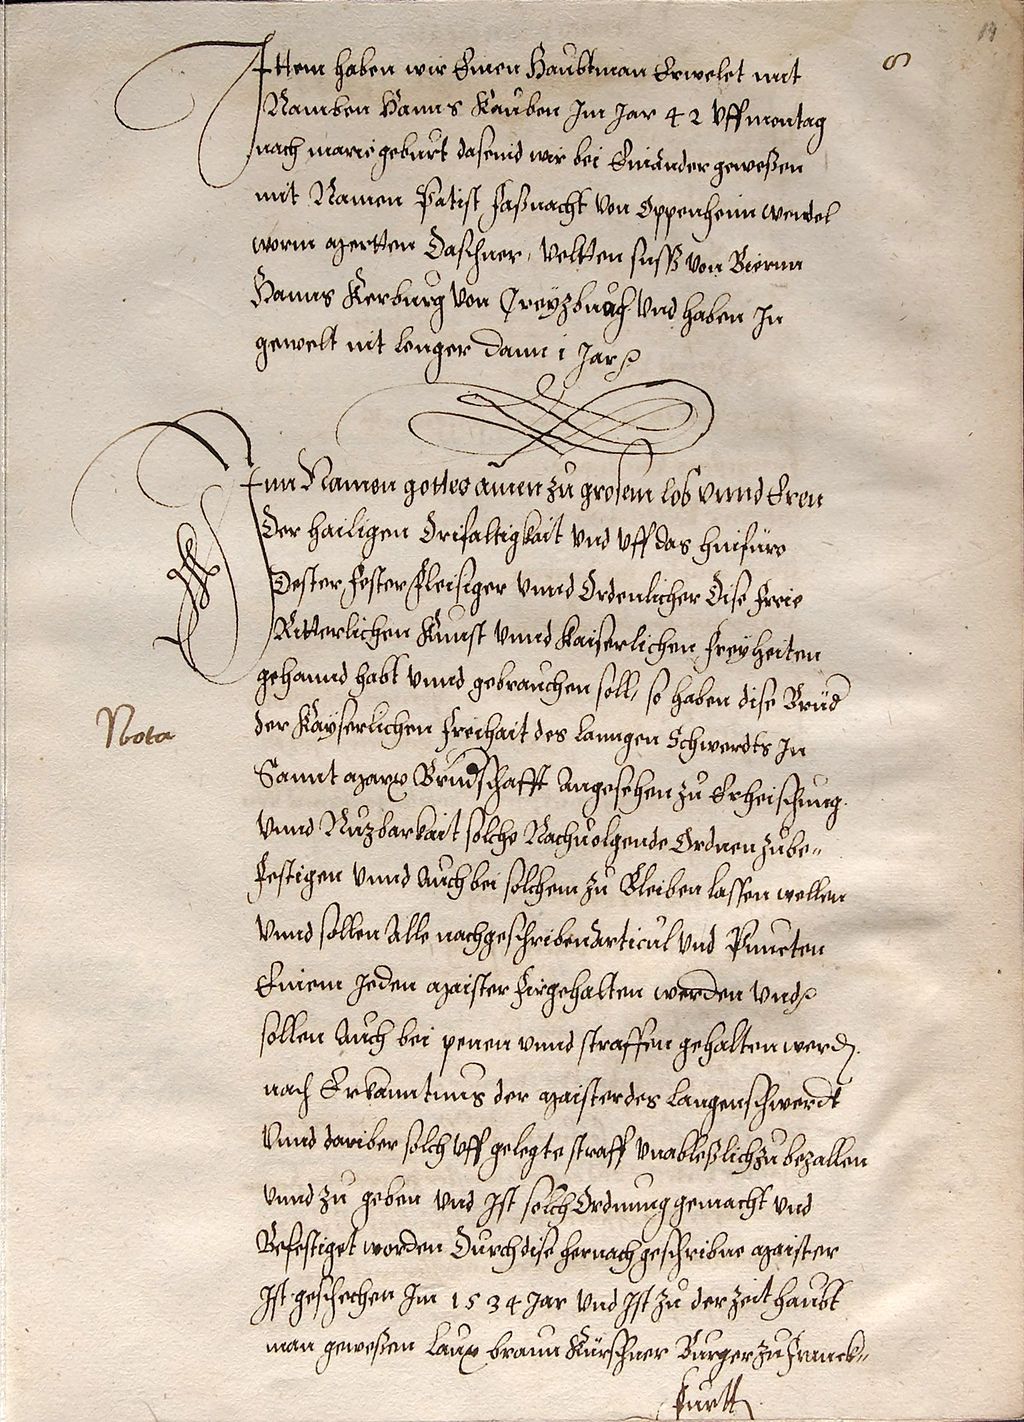 19
8
Ittem haben wir Einen Haubtman Erwelet mit
Namben Hanns Kauben Im Jar 42 Uff montag
nach marie geburt da seind wir bei Einander geweßen
mit Namen Patist Faßnacht von Oppenheim wendel
worm Mertten Daschner, Veltten suß von Biernn
Hanns Kerburg Von Creÿzbnach Und haben In
gewelt nit lenger dann 1 Jar
Inn Namen gottes amen zu grosem lob vnnd Eren
Der hailigen Drifaltigkait Vnd Uff das hinfüro
Dester fester fleisiger vnnd Ordenlicher Dise freie
Ritterlichen Kunst vnnd kaiserlichen freÿheiten
gehannd habt vnnd gebrauchen soll, so haben dise Brüd
Nota
der Kaÿserlichen Freihait des lanngen Schwerdts In
Sannt Marx Brudschafft Angesehen zu Erheischung
Vnnd Nuzbarkait solche Nachuolgende Ordnen zu be-
festigen Vnnd Auch bei solchem zu Bleiben lassen wellen
Vnnd sollen Alle nachgeschriben Articul vnd Puncten
Einem Jeden Maister firgehalten werden Und
sollen Auch bei penen vnnd straffen gehalten werd
nach Erkanntnus der Maister des Langenschwerdt
Vnnd dariber solch Uff gelegte straff vnableßlich zu bezallen
Vnnd zu geben vnd Ist solch Ordnung gemacht vnd
Befestiget worden Durch dise hernach geschribne Maister
Ist geschechen Im 1534 Jar Vnd Ist zu der zeit haubt
man geweßen Laux braun Kürschner Burger zu Franck-
furtt